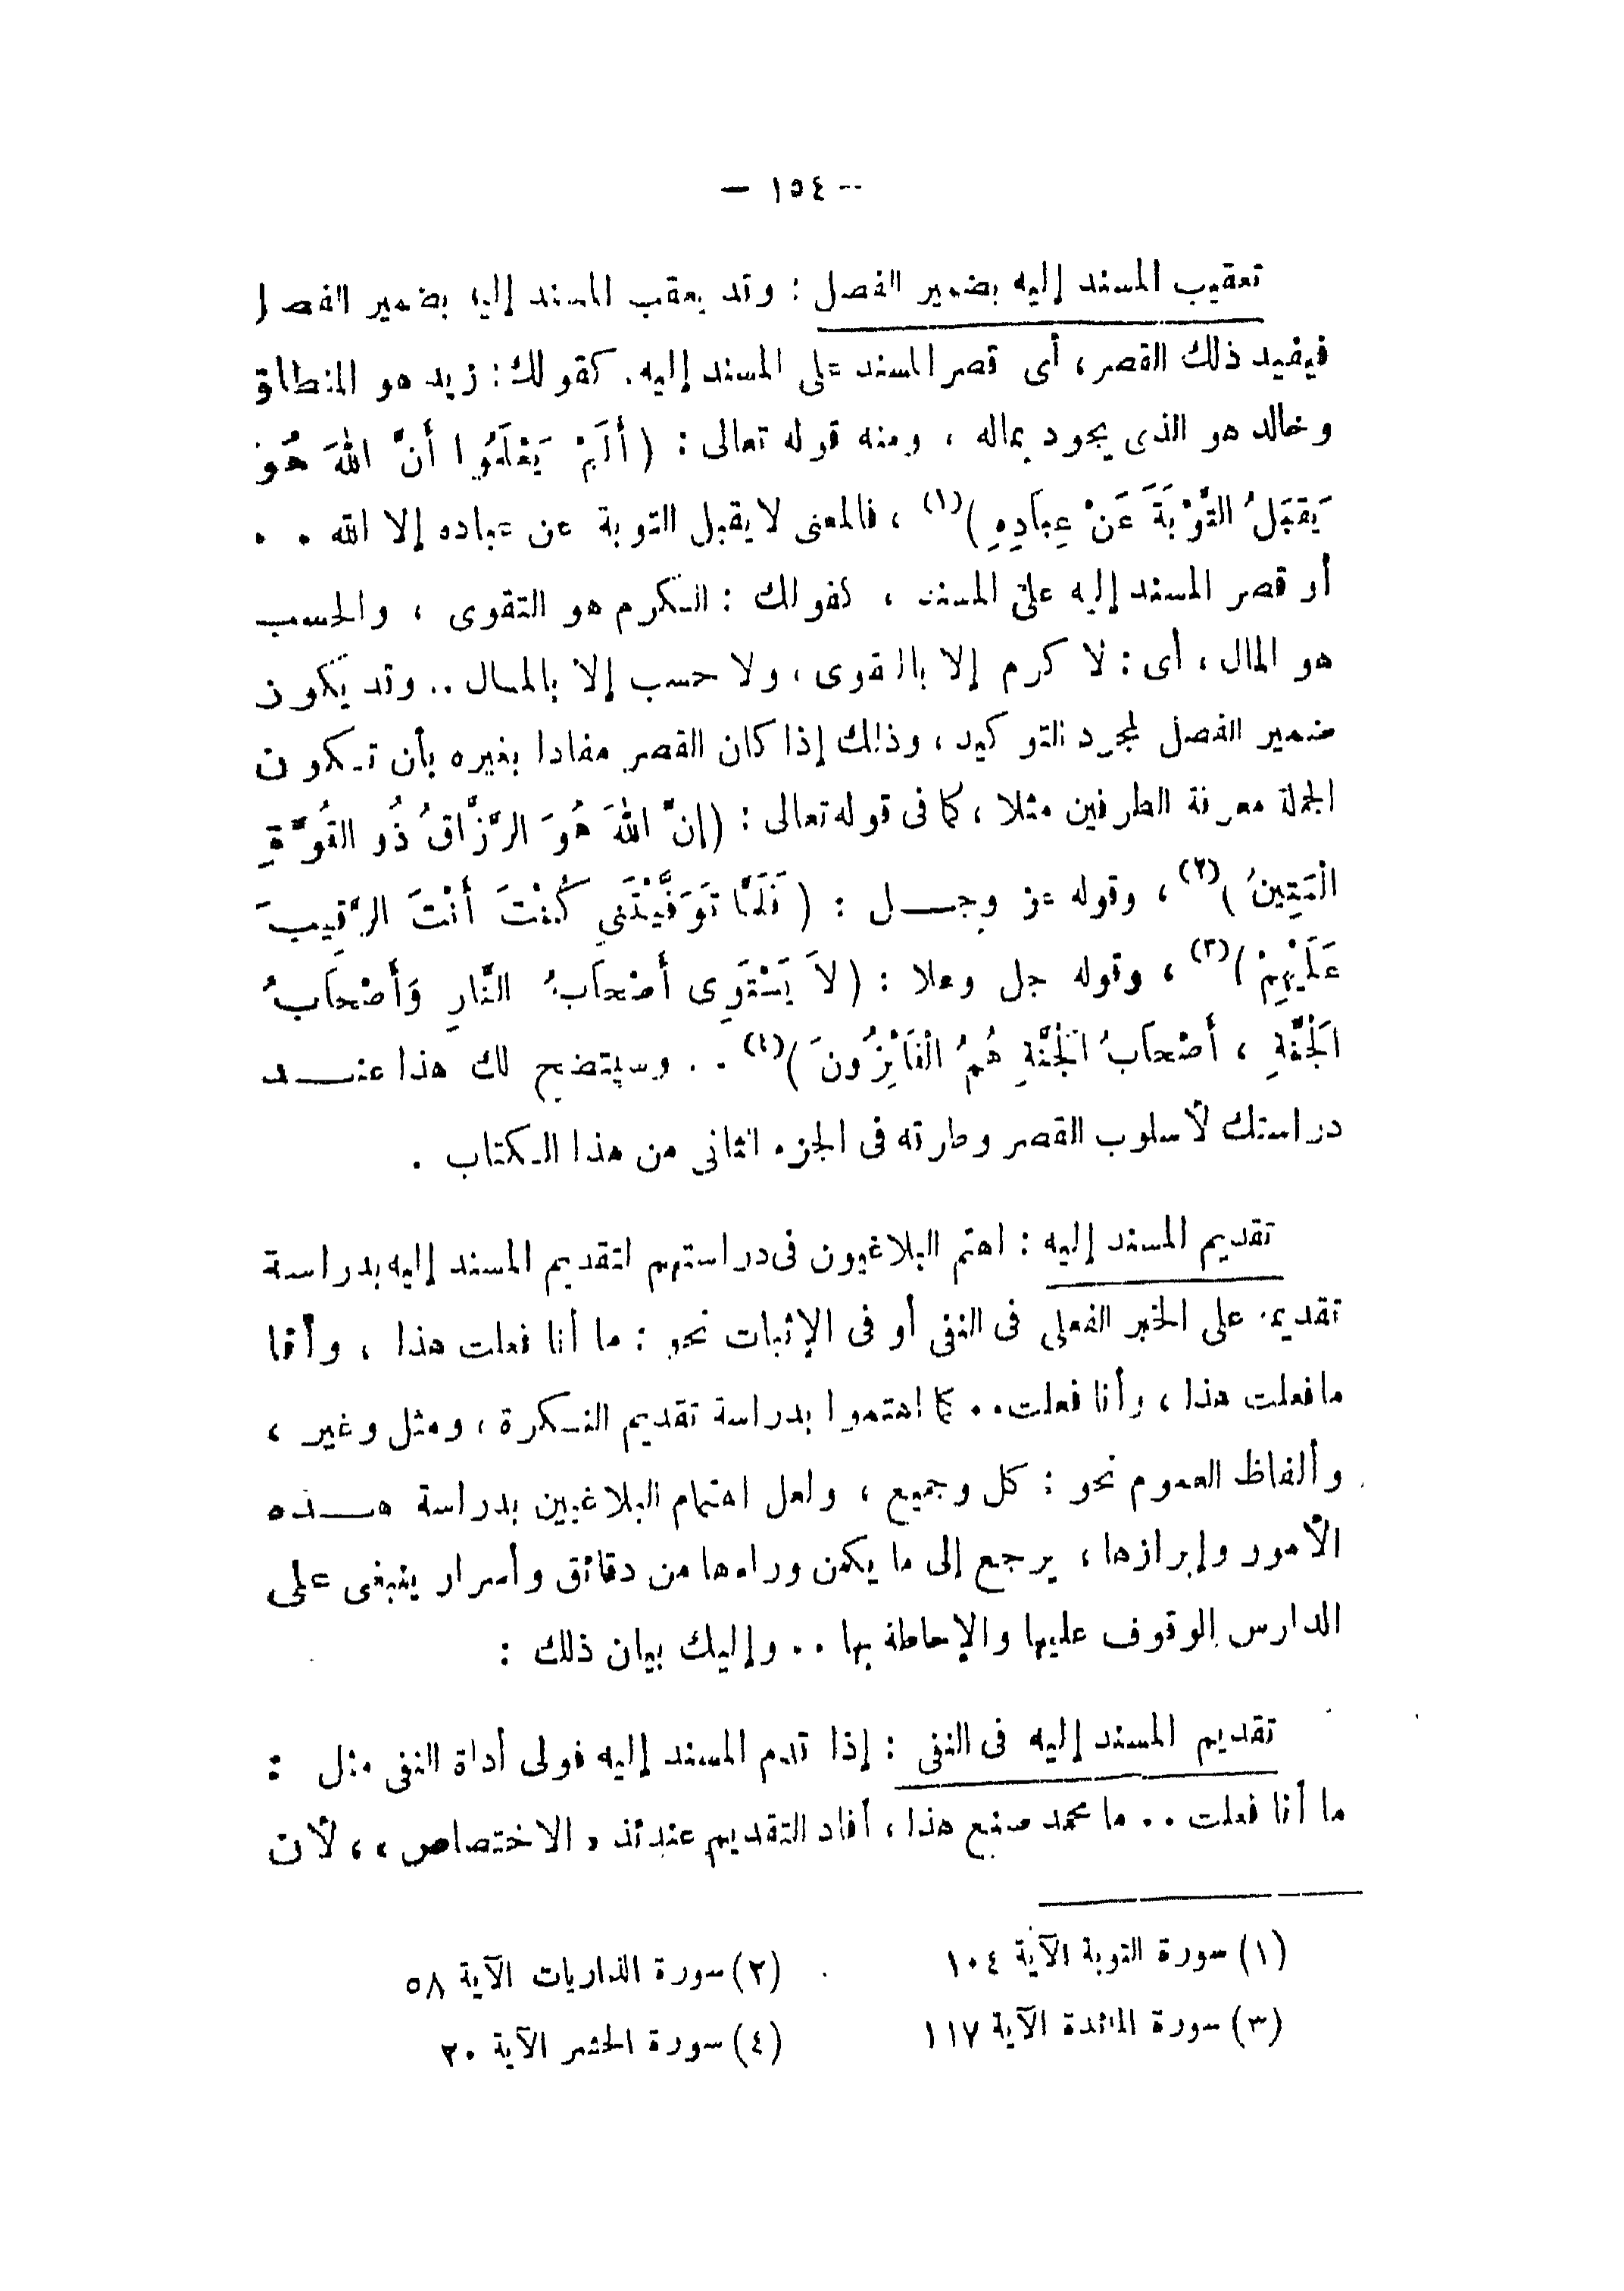 — ١٥٤ —
تعقيب المسند إليه بضمير الفصل : وقد يعقب المسند إليه بضمير الفصل
فيفيد ذلك القصر ، أى قصر المسند على المسند إليه . كقولك : زيد هو المنطلق
وخالد هو الذى يجود بماله ، ومنه قوله تعالى : ( أَلَمْ يَعْلَمُوا أَنَّ اللهَ هُوَ
يَقبَلُ التَّوْبَةَ عَنْ عِبَادِهِ )(١) ، فالمعنى لا يقبل التوبة عن عباده إلا الله . .
أو قصر المسند إليه على المسند ، كقولك : الكرم هو التقوى ، والحسب
هو المال ، أى : لا كرم إلا بالتقوى ، ولا حسب إلا بالمال .. وقد يكون
ضمير الفصل لمجرد التوكيد ، وذلك إذا كان القصر مفادا بغيره بأن تكون
الجملة معرفة الطرفين مثلا ، كما فى قوله تعالى : (إنَّ اللهَ هُوَ الرَّزَّاقُ ذُو القُوَّةِ
الْمَتِينُ )(٢) ، وقوله عز وجل : ( فَلَمَّا تَوَفَّيْتَنِي كُنْتَ أَنْتَ الرَّقِيبَ
عَلَيْهِمْ )(٣) ، وقوله جل وعلا : ( لاَ يَسْتَوِى أَصْحَابُ النَّارِ وَأَصْحَابُ
الْجَنَّةِ ، أَصْحَابُ الْجَنَّةِ هُمُ الْفَائِزُونَ )(٤) . . وسيتضح لك هذا عند
دراستك لأسلوب القصر وطرقه فى الجزء الثانى من هذا الكتاب .
تقديم المسند إليه : اهتم البلاغيون فى دراستهم لتقديم المسند إليه بدراسة
تقديمه على الخبر الفعلى فى النفى أو فى الإثبات نحو : ما أنا فعلت هذا ، وأنا
ما فعلت هذا ، وأنا فعلت .. كما اهتموا بدراسة تقديم النكرة ، ومثل وغير ،
وألفاظ العموم نحو : كل وجميع ، ولعل اهتمام البلاغيين بدراسة هذه
الأمور وإبرازها ، يرجع إلى ما يكمن وراءها من دقائق وأسرار ينبغى على
الدارس الوقوف عليها والإحاطة بها .. وإليك بيان ذلك :
تقديم المسند إليه فى النفى : إذا تقدم المسند إليه فولى أداة النفى مثل :
ما أنا فعلت .. ما محمد صنع هذا ، أفاد التقديم عندئذ « الاختصاص » ، لأن
(١) سورة التوبة الآية ١٠٤
(٢) سورة الذاريات الآية ٥٨
(٣) سورة المائدة الآية ١١٧
(٤) سورة الحشر الآية ٢٠